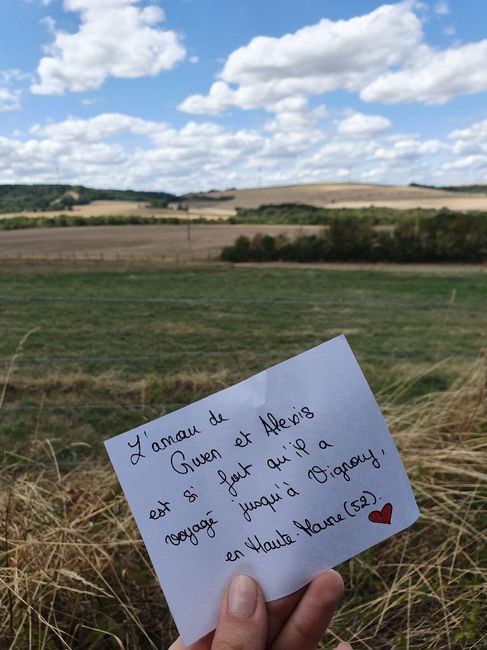 L'amour de
Gwen et Alexis
est si fort qu'il a
voyagé jusqu'à Vignory,
en Haute-Marne (52).